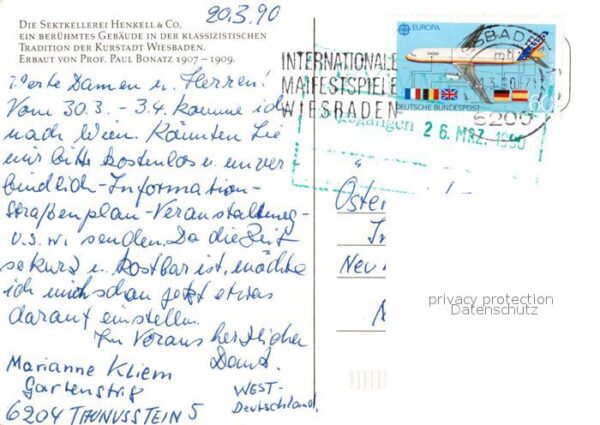 20.3.90
Die Sektkellerei Henkell & Co,
ein berühmtes Gebäude in der klassizistischen
Tradition der Kurstadt Wiesbaden.
Erbaut von Prof. Paul Bonatz 1907 – 1909.
Werte Damen u. Herren!
Vom 30.3. – 3.4. komme ich
nach Wien. Könnten Sie
mir bitte kostenlos u. unver-
bindlich – Information-
straßenplan – Veranstaltung-
u.s.w. senden. Da die Zeit
so kurz u. kostbar ist, möchte
ich mich schon jetzt etwas
darauf einstellen.
Im Voraus herzlichen
Dank.
Marianne Kliem
Gartenstr
6204 TAUNUSSTEIN 5
WEST-
Deutschland
EUROPA
DEUTSCHE BUNDESPOST
60
INTERNATIONALE
MAIFESTSPIELE
WIESBADEN
6200
Eingegangen 26. MRZ. 1990
Öster
In
Neu
privacy protection
Datenschutz